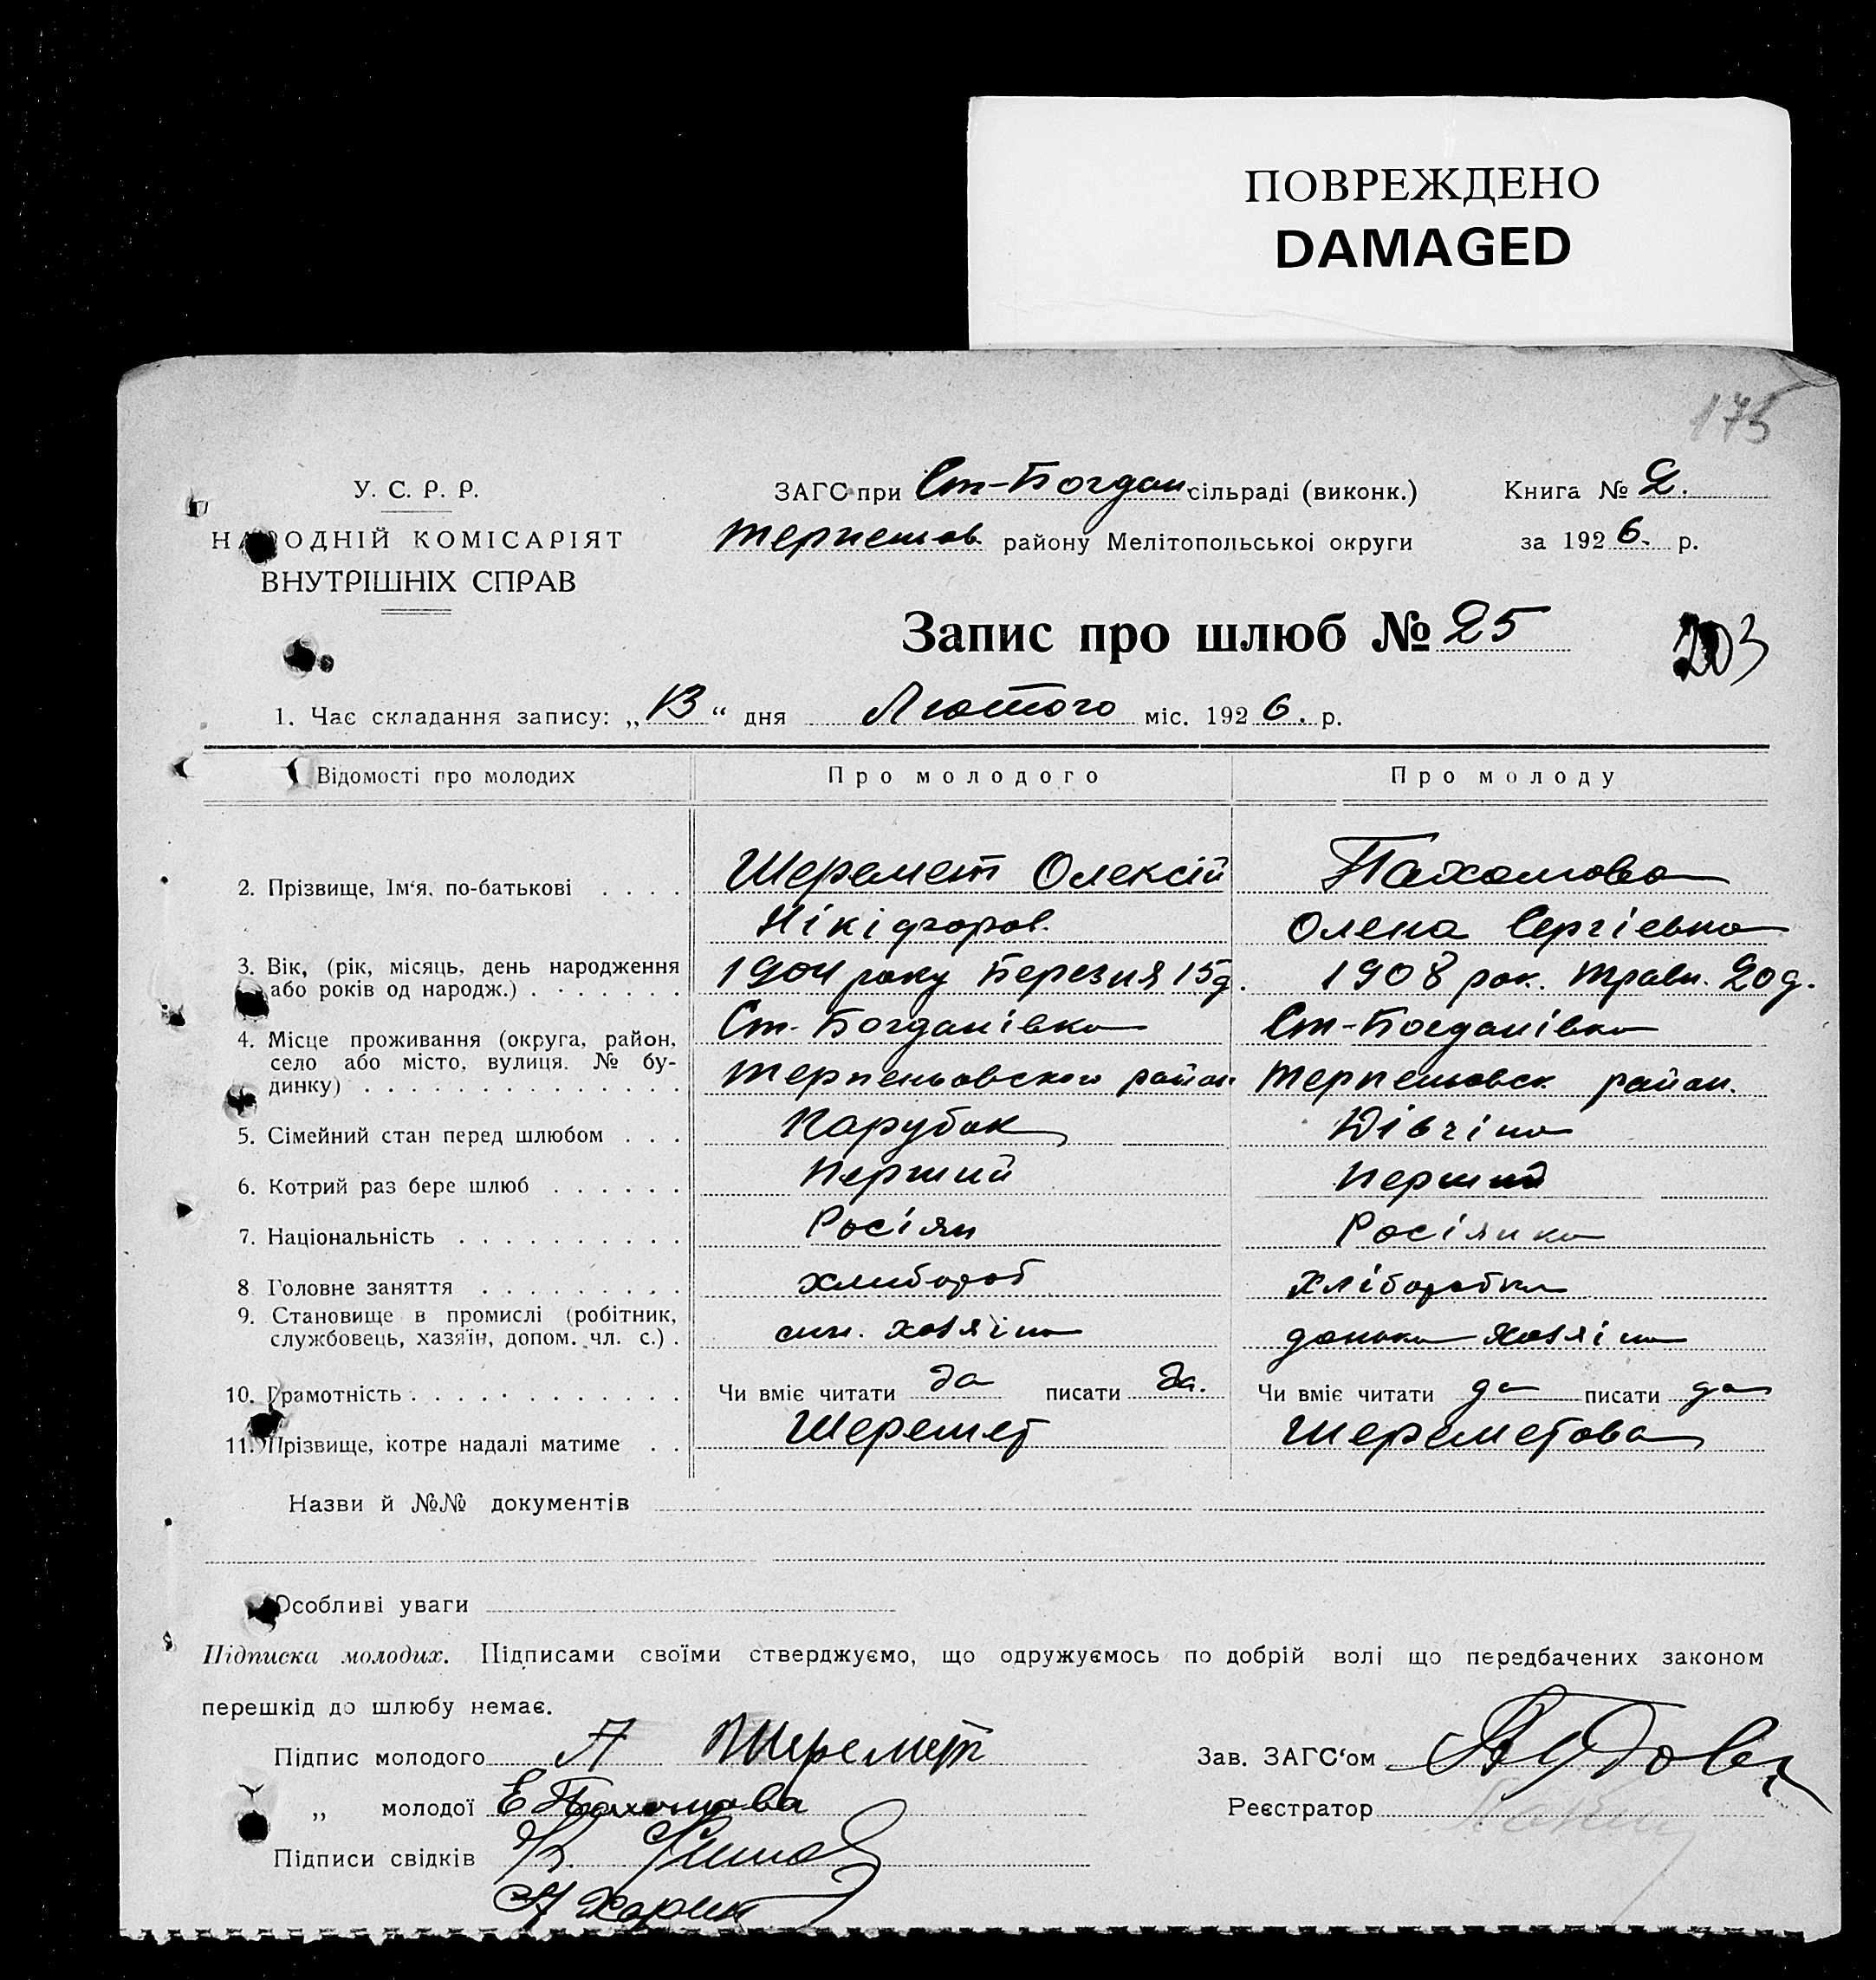 ПОВРЕЖДЕНО
DAMAGED
175
У. С. Р. Р.
НАРОДНІЙ КОМІСАРІЯТ
ВНУТРІШНІХ СПРАВ
ЗАГС при Ст-Богдан сільраді (виконк.)
Терпеньов. району Мелітопольської округи
Книга № 2.
за 1926. р.
Запис про шлюб № 25
203
1. Час складання запису: „13" дня Лютого міс. 1926. р.
Відомості про молодих Про молодого Про молоду
2. Прізвище, Ім'я, по-батькові . . . . Шеремет Олексій Пахомова
Нікіфоров. Олена Сергіевна
3. Вік, (рік, місяць, день народження 1904 року Березня 15д. 1908 рок. Травн. 20д.
або років од народж.) . . . . . . .
4. Місце проживання (округа, район, Ст-Богданівка Ст-Богданівка
село або місто, вулиця, № бу-
динку) . . . . . . . . . . . . . . Терпеньовского район Терпеньовск район.
5. Сімейний стан перед шлюбом . . . Парубок Дівчіна
6. Котрий раз бере шлюб . . . . . . Перший Перший
7. Національність . . . . . . . . . . Росіян Росіянка
8 Головне заняття . . . . . . . . . хлибороб Хліборобка
9. Становище в промислі (робітник,
службовець, хазяїн, допом. чл. с.) . син. хозяіна донька Хозяіна
10. Грамотність . . . . . . . . . . . . Чи вміє читати да писати да. Чи вміє читати да писати да
11. Прізвище, котре надалі матиме . . Шеремет Шереметова
Назви й №№ документів
Особливі уваги
Підписка молодих. Підписами своїми стверджуємо, що одружуємось по добрій волі що передбачених законом
перешкід до шлюбу немає.
Підпис молодого А Шеремет
Зав. ЗАГС'ом
„ молодої Е Пахомова
Реєстратор
Підписи свідків К.
А Харин